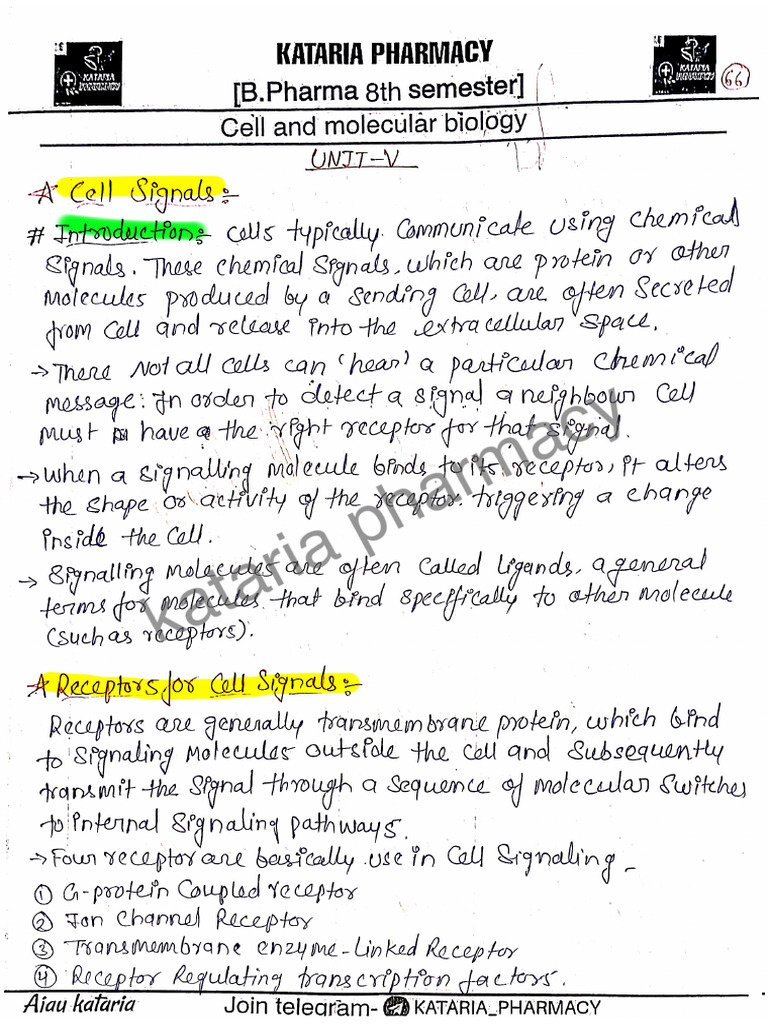 KATARIA PHARMACY
[B.Pharma 8th semester]
66
Cell and molecular biology
UNIT-V
Cell Signals:-
# Introduction:- cells typically communicate using chemical
Signals. These chemical signals, which are protein or other
molecules produced by a sending cell, are often secreted
from cell and release into the extracellular space.
→ There Not all cells can 'hear' a particular chemical
message: In order to detect a signal a neighbour cell
must have a the right receptor for that signal.
→ when a signalling molecule binds to its receptor, it alters
the shape or activity of the receptor. triggering a change
inside the cell.
→ Signalling molecules are often called ligands, a general
terms for molecules that bind specffically to other molecule
(such as receptors).
kataria pharmacy
Receptors for Cell Signals:-
Receptors are generally transmembrane protein, which bind
to signaling molecules outside the cell and subsequently
transmit the signal through a sequence of molecular switches
to internal signaling pathways.
→ Four receptor are basically use in cell signaling -
① G-protein coupled receptor
② Ion Channel Receptor
③ Transmembrane enzyme-Linked Receptor
④ Receptor Regulating transcription factors.
Ajay kataria Join telegram- KATARIA_PHARMACY